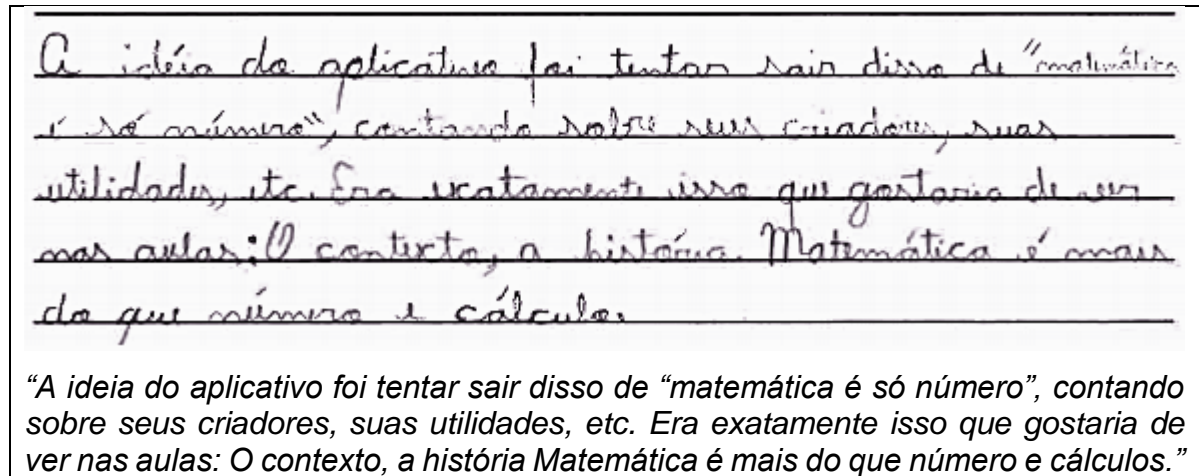 A idéia do aplicativo foi tentar sair disso de "matemática
é só número", contando sobre seus criadores, suas
utilidades, etc. Era exatamente isso que gostaria de ver
nas aulas: O contexto, a história. Matemática é mais
do que número e cálculo.
“A ideia do aplicativo foi tentar sair disso de “matemática é só número”, contando
sobre seus criadores, suas utilidades, etc. Era exatamente isso que gostaria de
ver nas aulas: O contexto, a história Matemática é mais do que número e cálculos.”